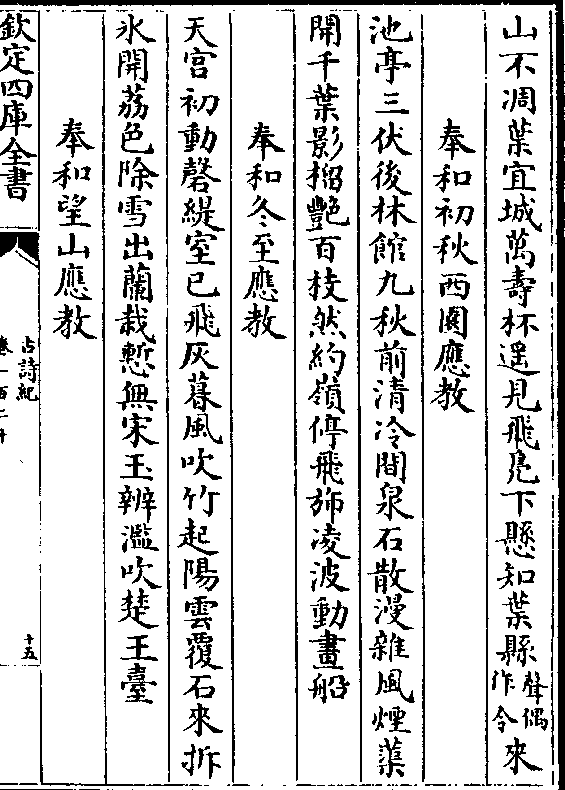 山不凋葉宜城萬壽杯遥見飛鳬下懸知葉縣聲偶作令來
奉和初秋西園應教
池亭三伏後林館九秋前清泠間泉石散漫雜風煙蕖
開千葉影榴艶百枝然約嶺停飛斾凌波動畫船
奉和冬至應教
天宫初動磬緹室已飛灰暮風吹竹起陽雲覆石來拆
氷開荔色除雪出蘭栽慙無宋玉辨濫吹楚王臺
奉和望山應教
欽定四庫全書
古詩紀
卷一百二十
十五